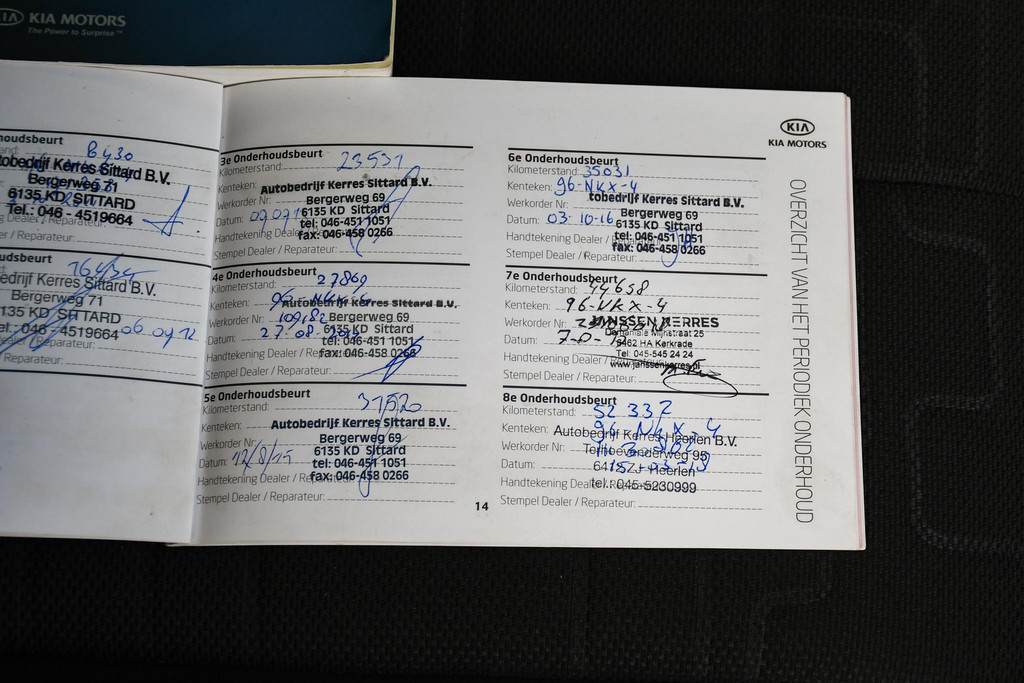 KIA KIA MOTORS
The Power to Surprise™
KIA
KIA MOTORS
OVERZICHT VAN HET PERIODIEK ONDERHOUD
houdsbeurt
8430
Autobedrijf Kerres Sittard B.V.
Bergerweg 71
6135 KD SITTARD
Tel.: 046 - 4519664
Dealer / Reparateur:
/ Reparateur:
dsbeurt
Kerres Sittard B.V.
Bergerweg 71
6135 KD SITTARD
tel: 046 - 4519664
06 09 12
Reparateur:
3e Onderhoudsbeurt
Kilometerstand: 23531
Kenteken: Autobedrijf Kerres Sittard B.V.
Bergerweg 69
Werkorder Nr:
6135 KD Sittard
Datum:
tel: 046-451 1051
Handtekening Dealer
fax: 046-458 0266
Stempel Dealer / Reparateur:
4e Onderhoudsbeurt
Kilometerstand: 27869
Kenteken: Autobedrijf Kerres Sittard B.V.
Werkorder Nr: Bergerweg 69
Datum: 27-08- 6135 KD Sittard
tel: 046-451 1051
Handtekening Dealer / Reparateur: fax: 046-458 0266
Stempel Dealer / Reparateur:
5e Onderhoudsbeurt
Kilometerstand: 31520
Kenteken: Autobedrijf Kerres Sittard B.V.
Bergerweg 69
Werkorder Nr:
6135 KD Sittard
Datum: 12/8/15 tel: 046-451 1051
Handtekening Dealer / fax: 046-458 0266
Stempel Dealer / Reparateur:
14
6e Onderhoudsbeurt
Kilometerstand: 35031
Kenteken: 96-NKX-4
tobedrijf Kerres Sittard B.V.
Werkorder Nr:
Bergerweg 69
Datum: 03-10-16 6135 KD Sittard
tel: 046-451 1051
Handtekening Dealer / fax: 046-458 0266
Stempel Dealer / Reparateur:
7e Onderhoudsbeurt
Kilometerstand: 44658
Kenteken: 96-NKX-4
Werkorder Nr: JANSSEN KERRES
Datum: Mijnstraat 25
6462 HA Kerkrade
Handtekening Dealer / Reparateur: Tel: 045-545 24 24
www.janssenkerres.nl
Stempel Dealer / Reparateur:
8e Onderhoudsbeurt
Kilometerstand: 52 332
Kenteken: 96-NKX-4
Autobedrijf Kerres Heerlen B.V.
Werkorder Nr: Terhoevenderweg 95
Datum: Heerlen
Handtekening Dealer tel.: 045-5230999
Stempel Dealer / Reparateur: